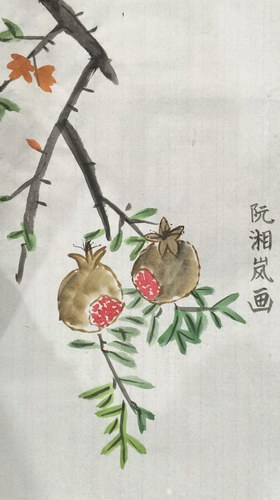 阮湘岚画